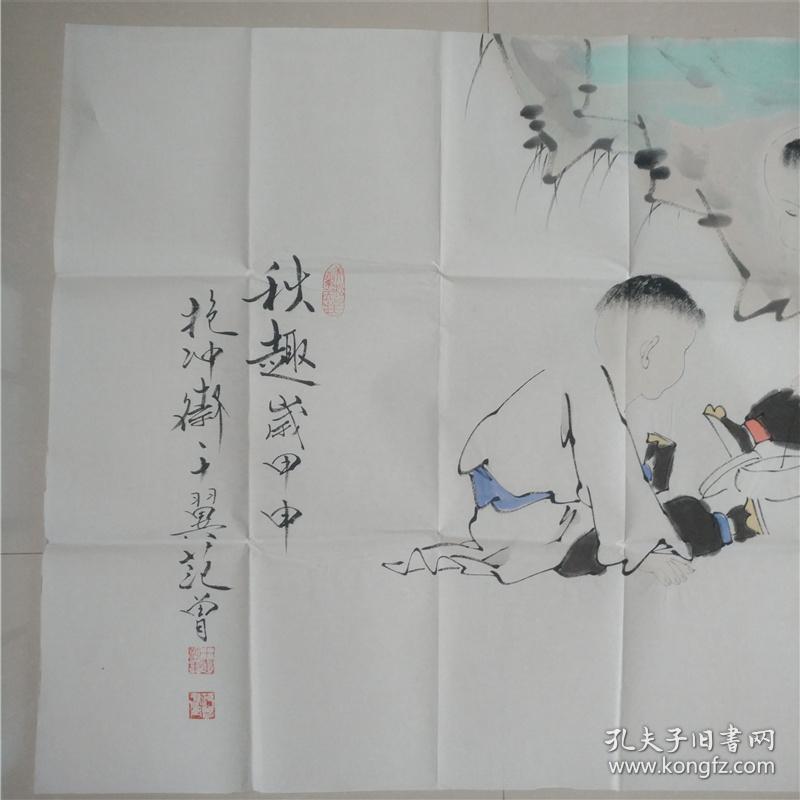 秋趣 歲甲申
抱冲斋十翼范曾
孔夫子旧書网
www.kongfz.com